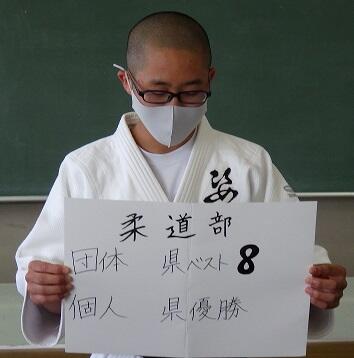 柔道部
団体 県ベスト8
個人 県優勝